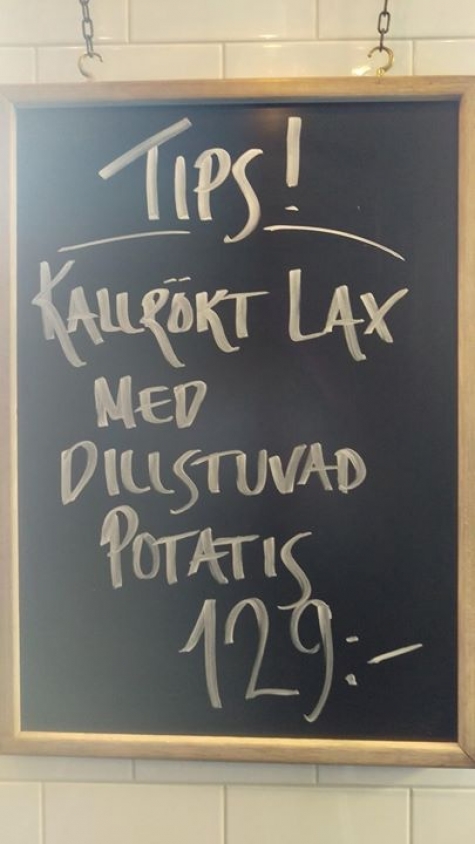 TIPS!
KALLRÖKT LAX
MED
DILLSTUVAD
POTATIS
129:-